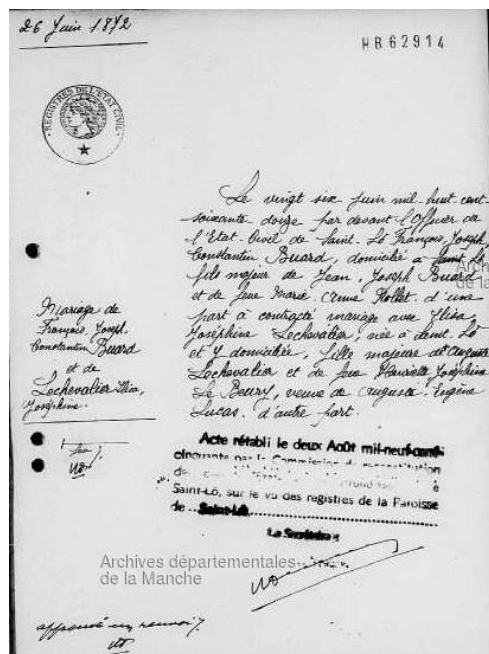 26 Juin 1872
HB62914
REGISTRES DE L'ETAT CIVIL
Le vingt six Juin mil-huit cent-
soixante douze par devant l'Officier de
l'Etat-Civil de Saint-Lô François, Joseph,
Constantin Buard, domicilié à Saint-Lô
fils majeur de Jean, Joseph Buard
et de feue Marie Anne Hollet d'une
part à contracté mariage avec Elisa
Joséphine Lechevalier, née à Saint-Lô
et y domiciliée, fille majeure de Auguste
Lechevalier et de feue Henriette Joséphine
Le Beury, veuve de Auguste, Eugène
Lucas. d'autre part.
Mariage de
François, Joseph
Constantin Buard
et de
Lechevalier Elisa,
Joséphine.
Acte rétabli le deux Août mil-neuf-cent-
cinquante par la Commission de reconstitution
Saint-Lô, sur le vu des registres de la Paroisse
de Saint-Lô
Archives départementales
de la Manche
approuvé un renvoi